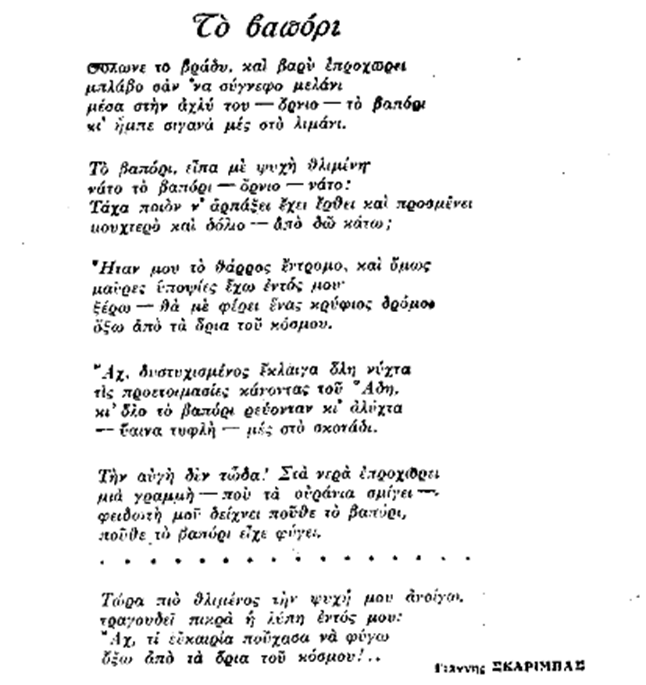 Τὸ βαπόρι
Θόλωνε τὸ βράδυ, καὶ βαρὺ ἐπροχώρει
μπλάβο σὰν ’να σύγνεφο μελάνι
μέσα στὴν ἀχλύ του — ὄρνιο — τὸ βαπόρι
κι’ ἦμπε σιγανὰ μὲς στὸ λιμάνι.
Τὸ βαπόρι, εἶπα μὲ ψυχὴ θλιμένη·
νάτο τὸ βαπόρι — ὄρνιο — νάτο!
Τάχα ποιὸν ν’ ἁρπάξει ἔχει ἔρθει καὶ προσμένει
μουχτερὸ καὶ δόλιο — ἀπὸ δῶ κάτω;
Ἦταν μου τὸ θάρρος ἔντρομο, καὶ ὅμως
μαῦρες ὑποψίες ἔχω ἐντός μου·
ξέρω — θὰ μὲ φέρει ἕνας κρύφιος δρόμος
ὄξω ἀπὸ τὰ ὅρια τοῦ κόσμου.
Ἄχ, δυστυχισμένος ἔκλαιγα ὅλη νύχτα
τὶς προετοιμασίες κάνοντας τοῦ Ἅδη,
κι’ ὅλο τὸ βαπόρι ρεύονταν κι’ ἀλύχτα
— ὕαινα τυφλὴ — μὲς στὸ σκοτάδι.
Τὴν αὐγὴ δὲν τὦδα! Στὰ νερὰ ἐπροχώρει
μιὰ γραμμὴ — ποὺ τὰ οὐράνια σμίγει —
φειδωτὴ μοῦ δείχνει ποῦθε τὸ βαπόρι,
ποῦθε τὸ βαπόρι εἶχε φύγει.
. . . . . . . . . . . . . . . .
Τώρα πιὸ θλιμένος τὴν ψυχή μου ἀνοίγω,
τραγουδεῖ πικρὰ ἡ λύπη ἐντός μου:
Ἄχ, τί εὐκαιρία ποὔχασα νὰ φύγω
ὄξω ἀπὸ τὰ ὅρια τοῦ κόσμου!..
Γιάννης ΣΚΑΡΙΜΠΑΣ